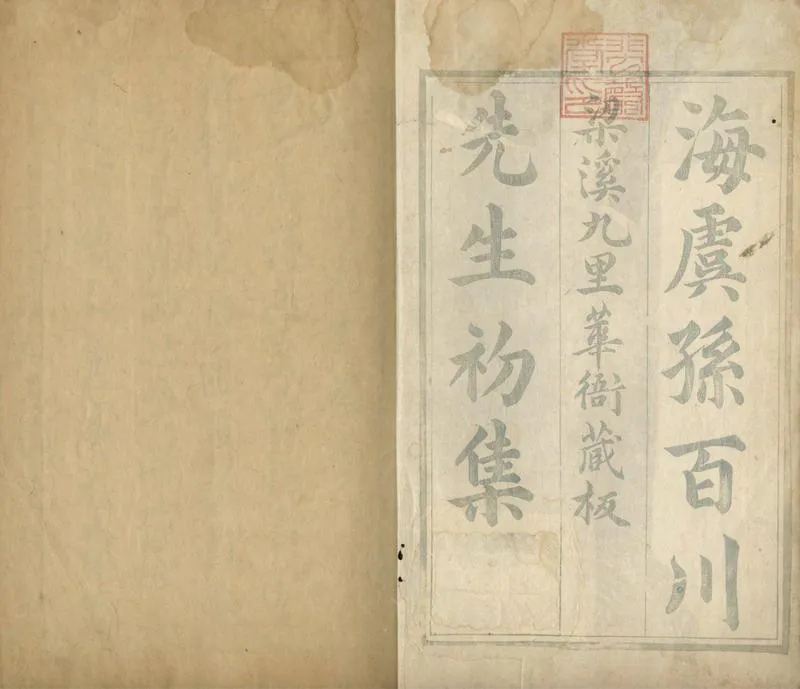 海虞孫百川
梁溪九里華衙蔵板
先生初集